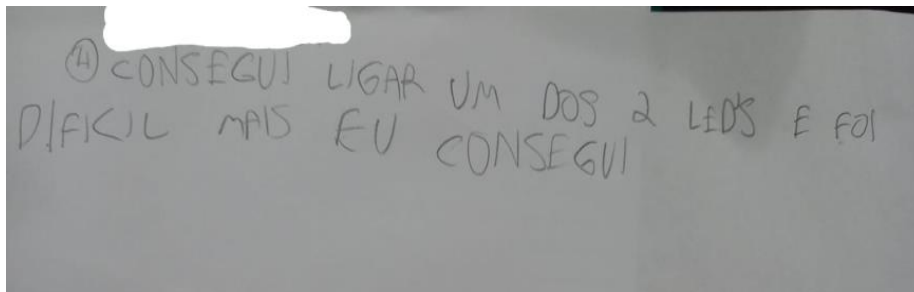 ④ CONSEGUI LIGAR UM DOS 2 LEDS E FOI
DIFICIL MAIS EU CONSEGUI